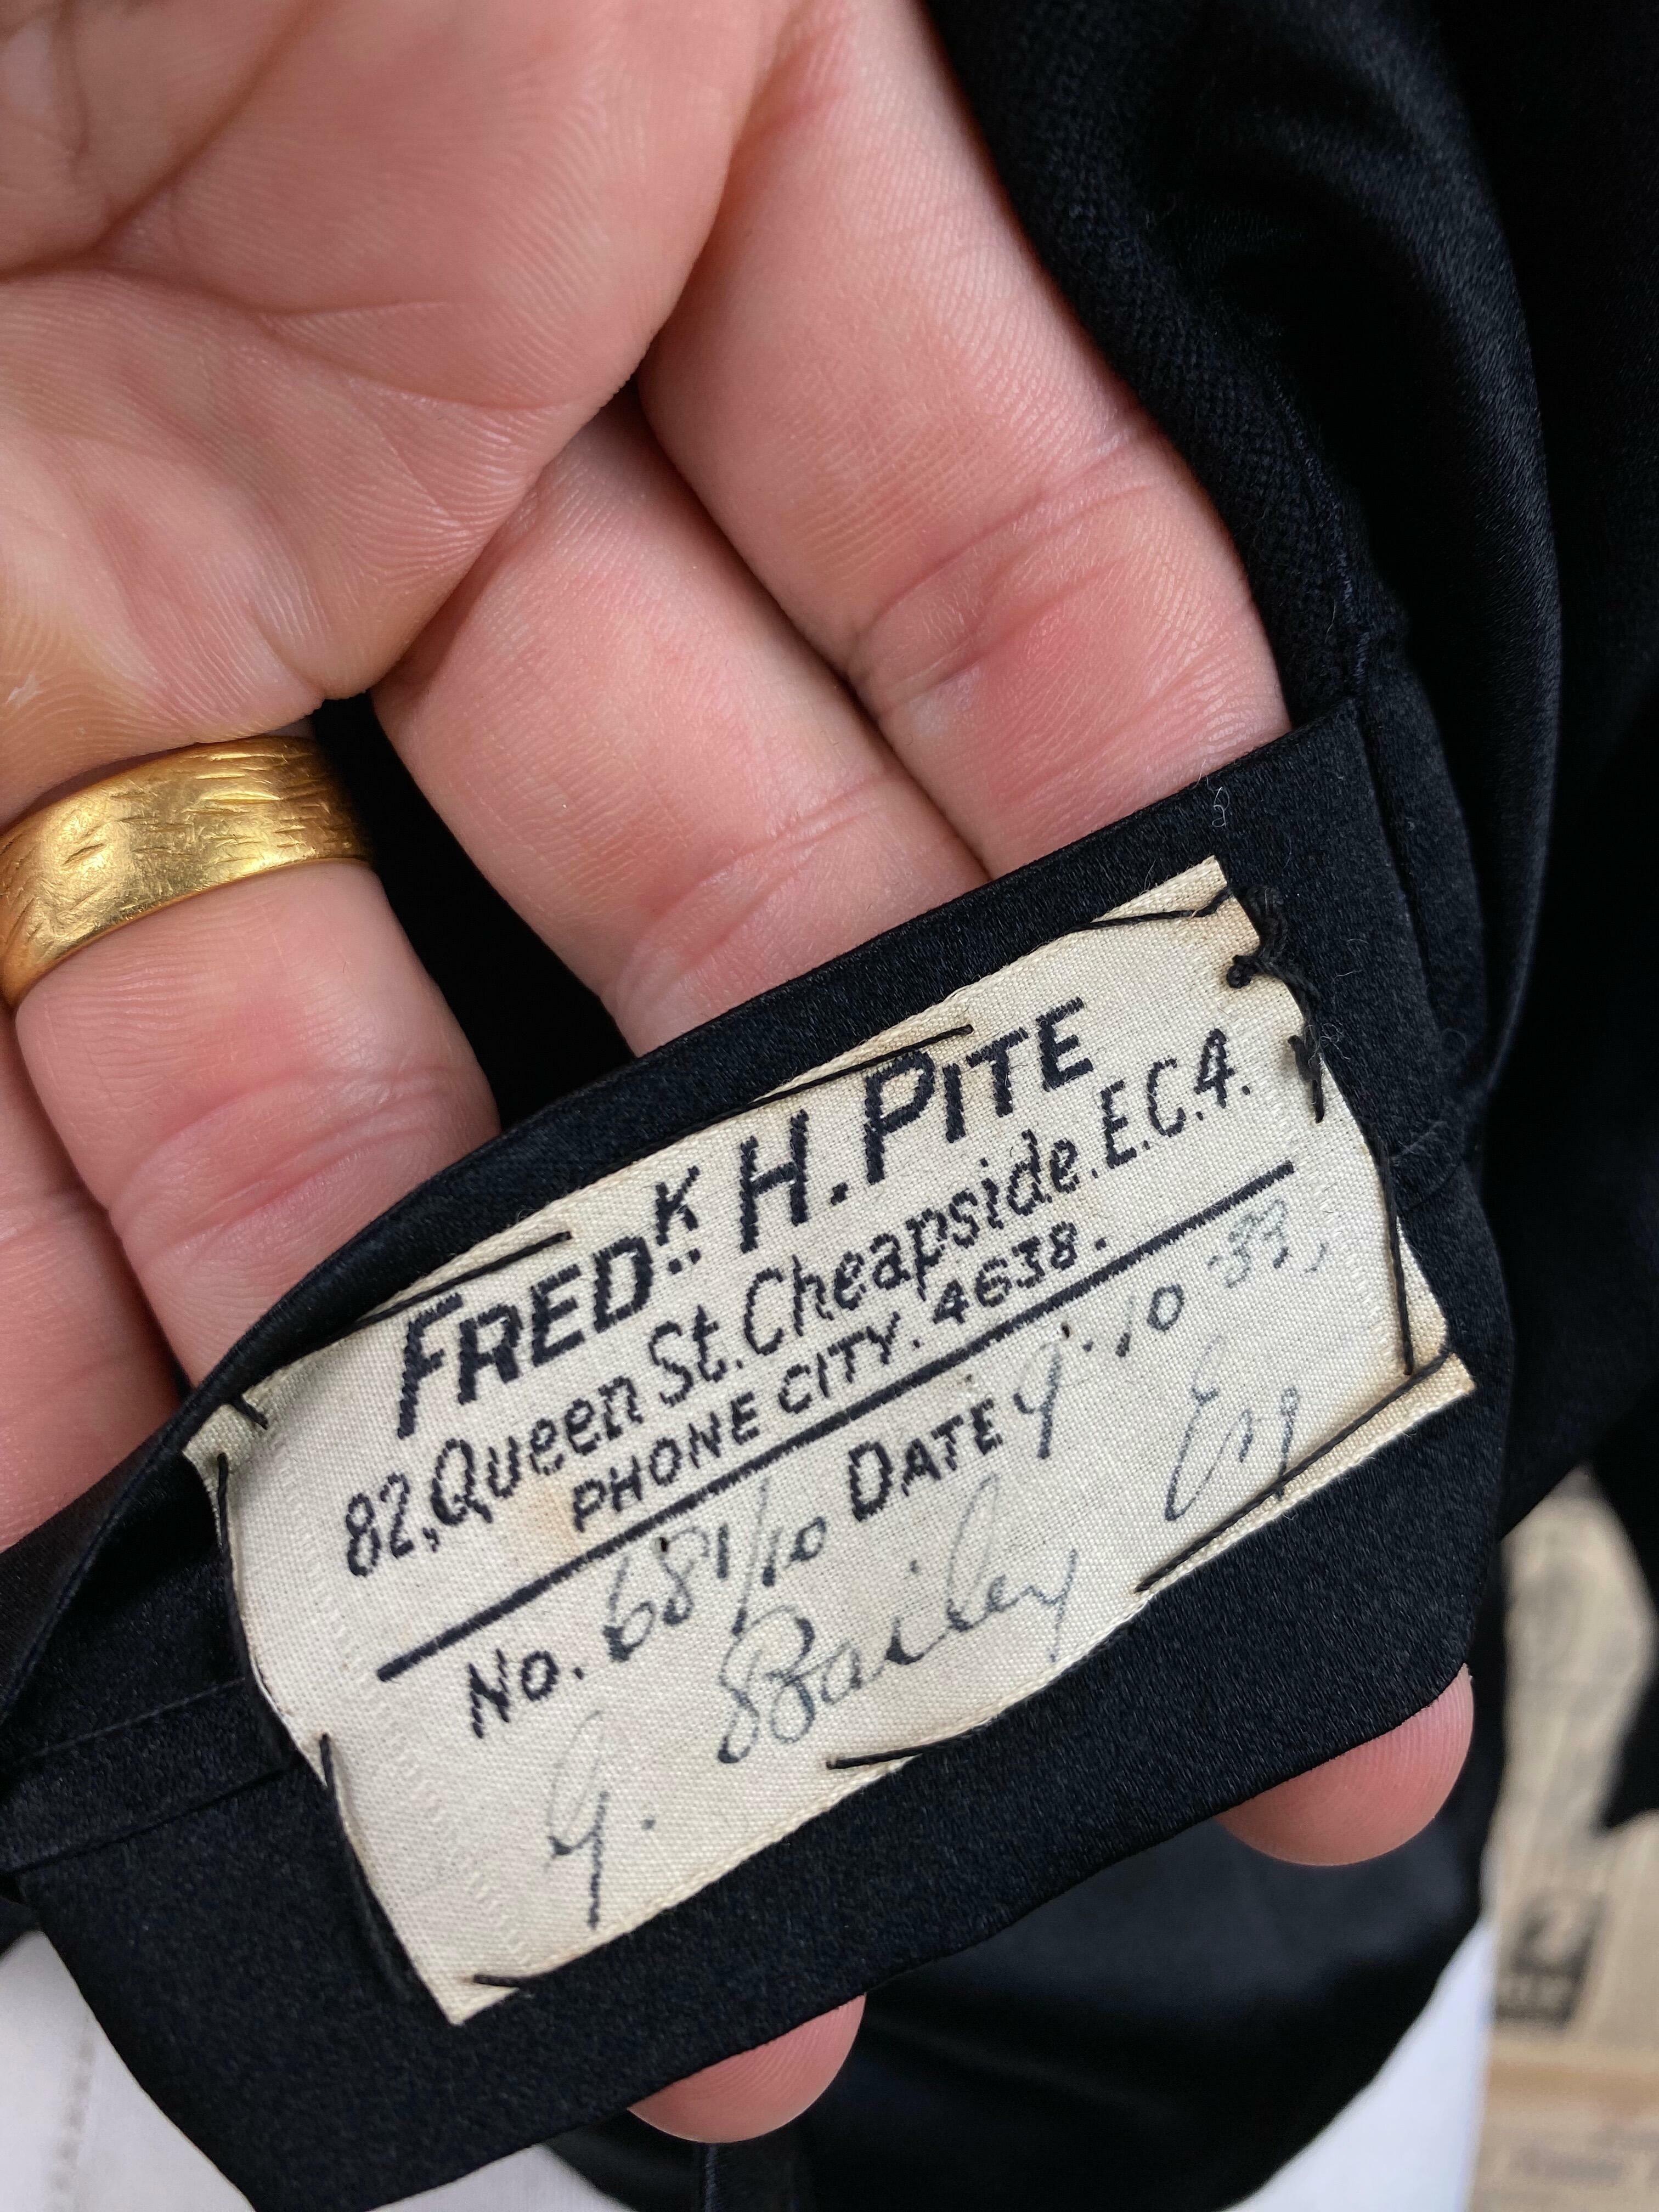 FREDK H. PITE
82, Queen St. Cheapside. E.C.4.
PHONE CITY. 4638.
No. 681/10 DATE 9.10.33,
G. Bailey Esq